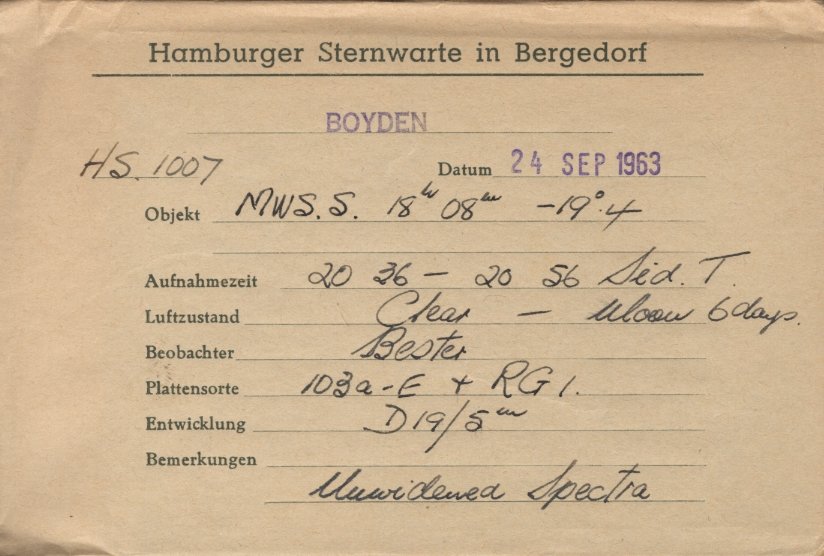 Hamburger Sternwarte in Bergedorf
BOYDEN
HS. 1007 Datum 24 SEP 1963
Objekt MWS. S. 18h 08m -19°.4
Aufnahmezeit 20 36 - 20 56 Sid. T.
Luftzustand Clear - Moon 6 days.
Beobachter Bester
Plattensorte 103a-E + RG 1.
Entwicklung D19/5m
Bemerkungen
Unwidened Spectra